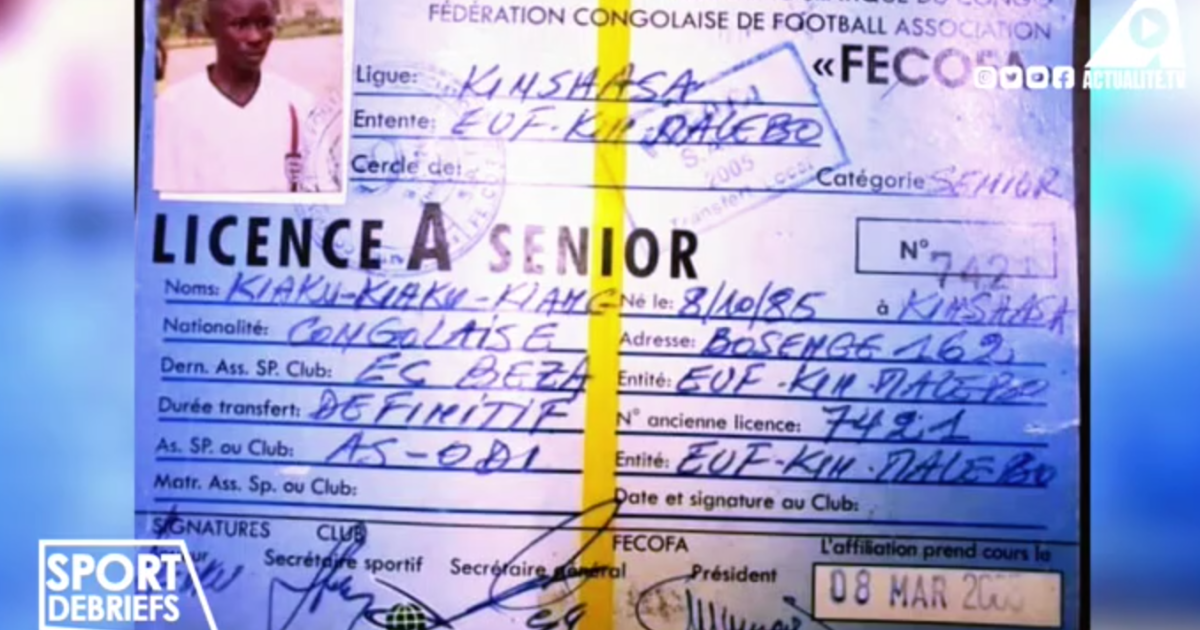 FÉDÉRATION CONGOLAISE DE FOOTBALL ASSOCIATION
«FECOFA
ACTUALITE.TV
Ligue: KINSHASA
Entente: EUF-KIN-MALEBO
Cercle de:
2005
Transfert Local
Catégorie SENIOR
LICENCE A SENIOR
N° 7421
Noms: KIAKU-KIAKU-KIANG Né le: 8/10/85 à KINSHASA
Nationalité: CONGOLAISE Adresse: BOSENGE 162
Dern. Ass. SP. Club: EC BEZA Entité: EUF-KIN-MALEBO
Durée transfert: DEFINITIF N° ancienne licence: 7421
As. SP. ou Club: AS-ODI Entité: EUF-KIN-MALEBO
Matr. Ass. Sp. ou Club: Date et signature au Club:
SIGNATURES CLUB FECOFA L'affiliation prend cours le
Secrétaire sportif Secrétaire général Président
08 MAR
SPORT
DEBRIEFS